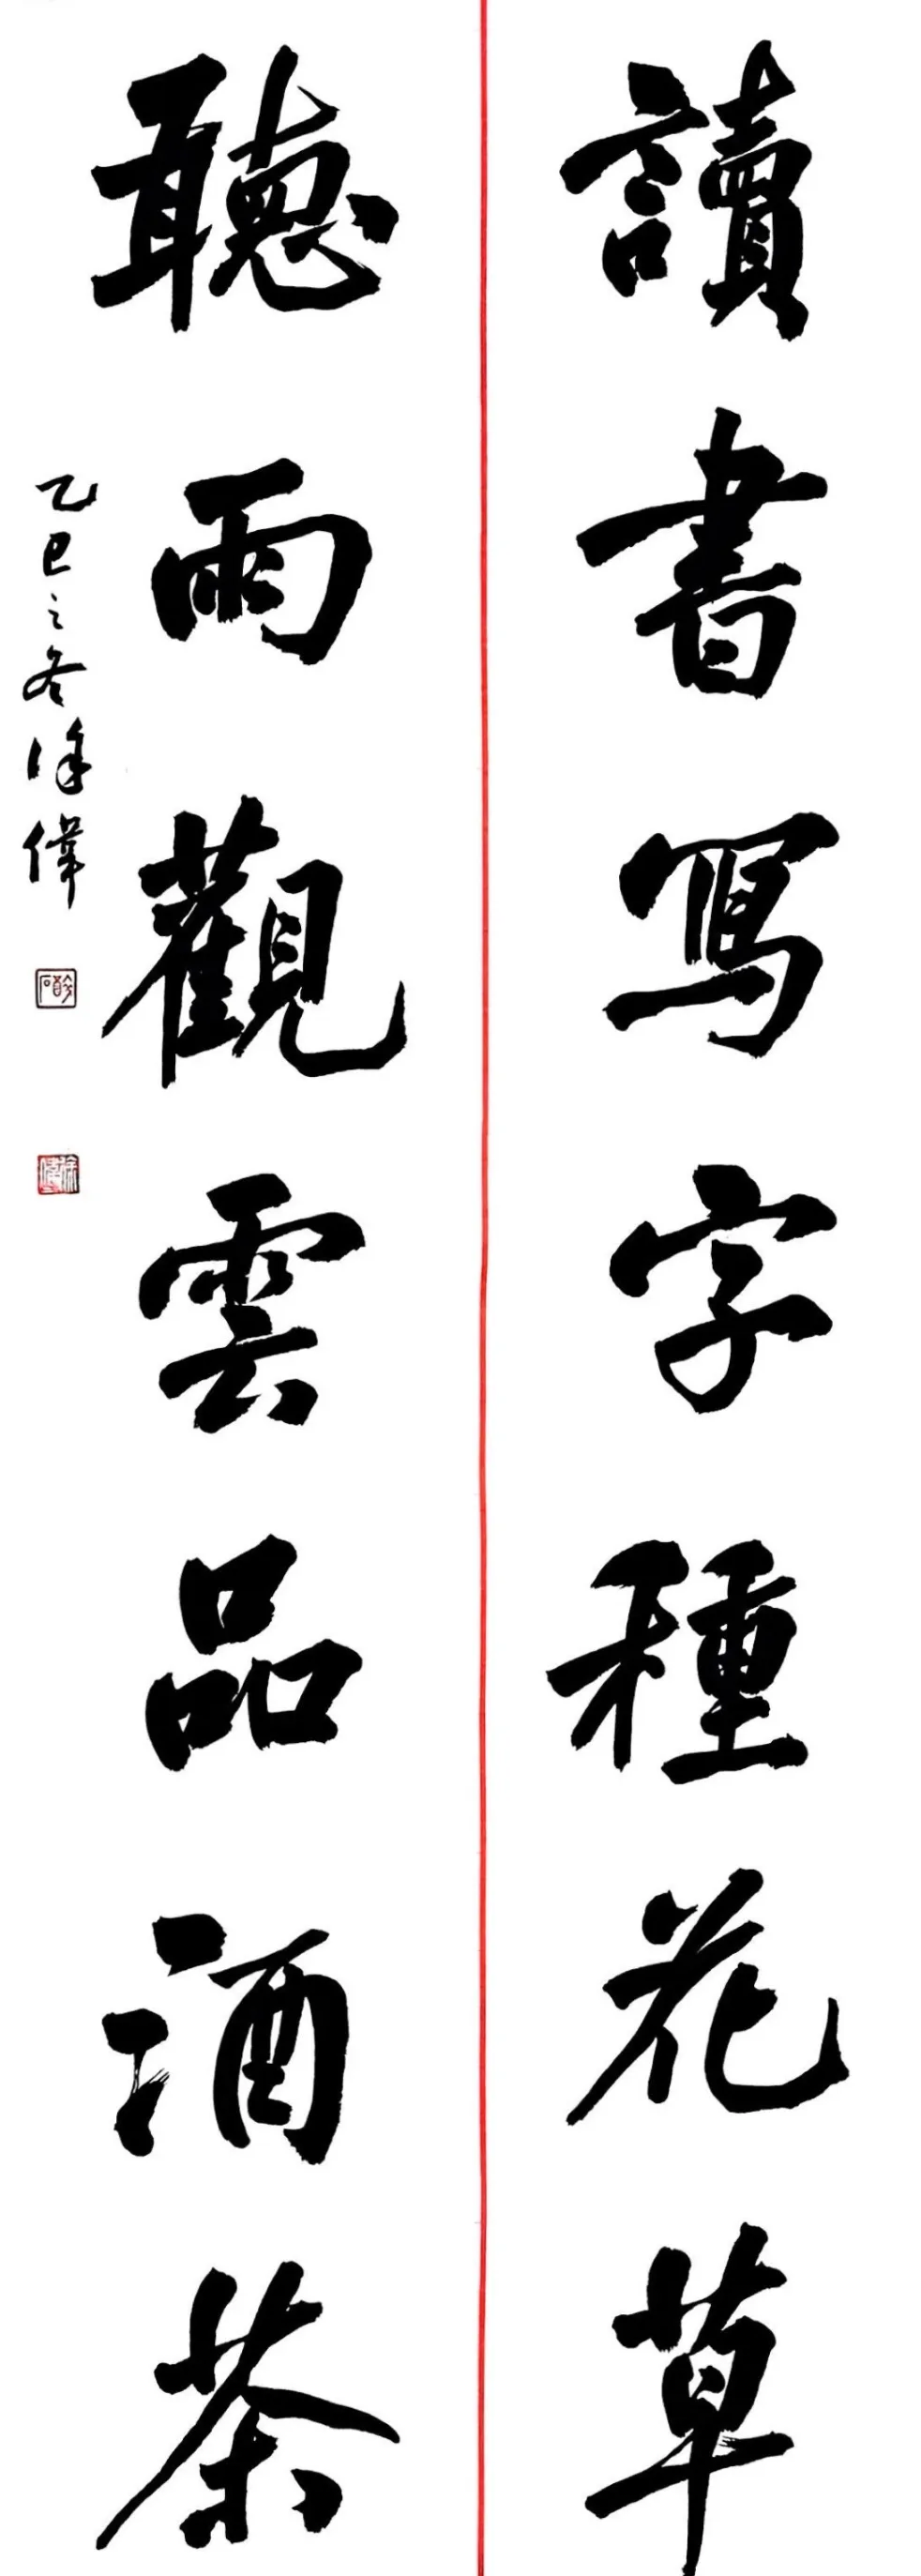 讀書寫字種花草
聽雨觀雲品酒茶
乙巳之冬徐偉